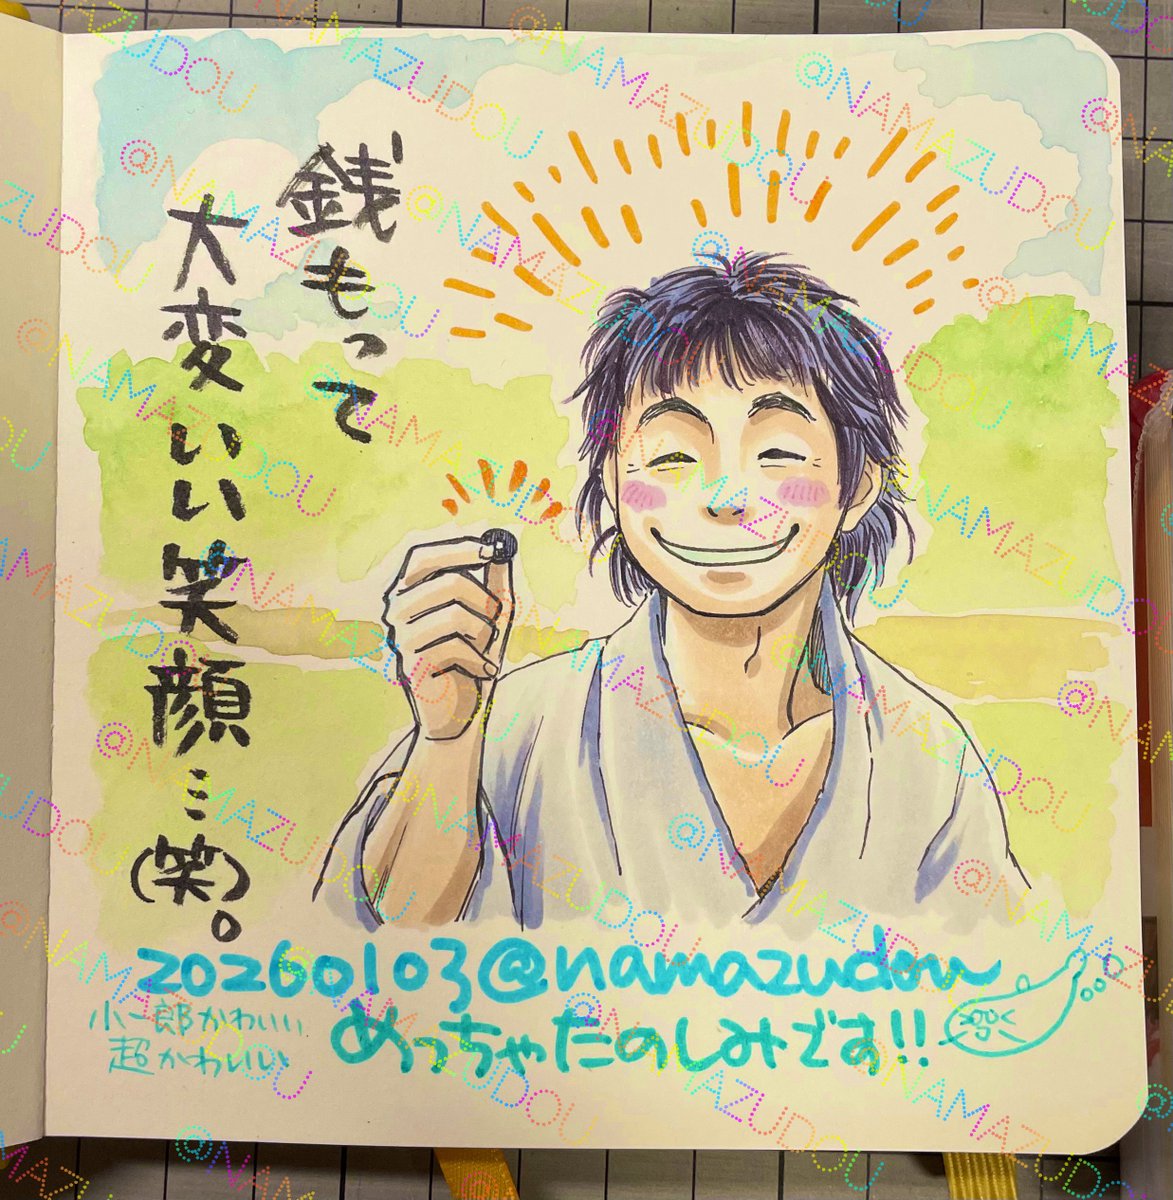 銭もって
大変いい笑顔…(笑)。
20260103@namazudou
小一郎かわいい
超かわいい
めっちゃたのしみです!!
@NAMAZUDOU